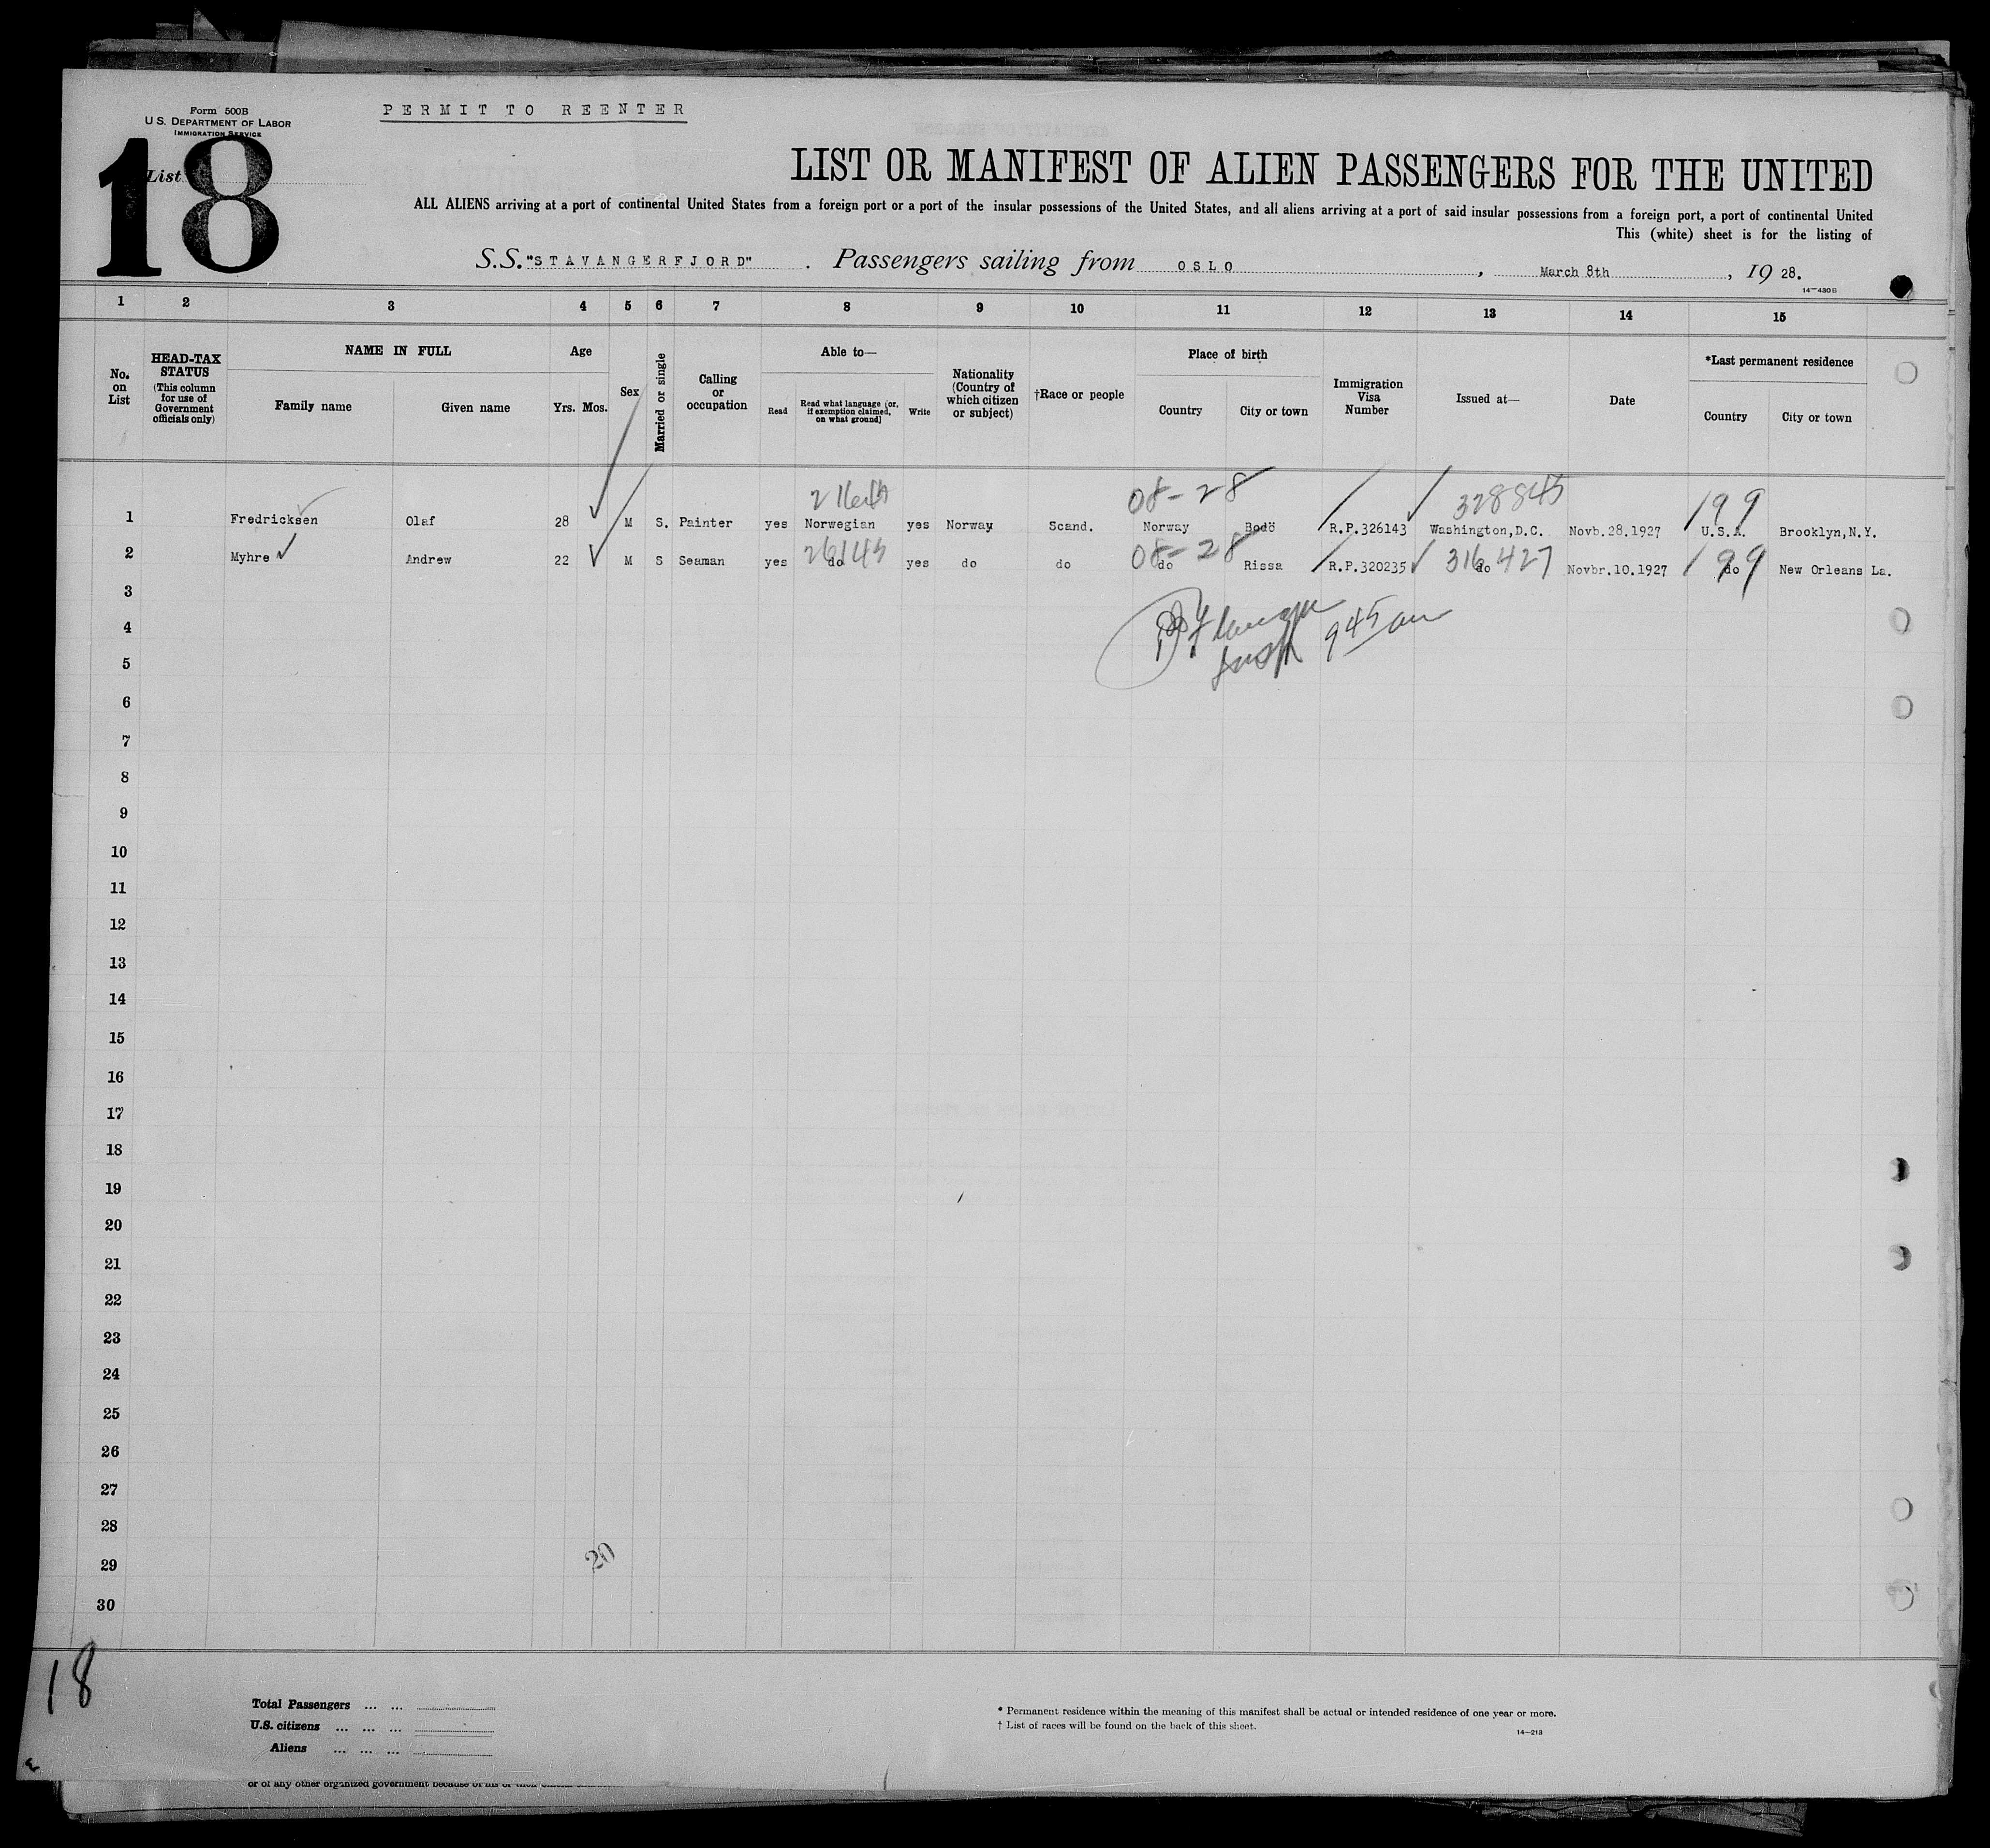 PERMIT TO REENTER
Form 500B
U.S. DEPARTMENT OF LABOR
IMMIGRATION SERVICE
List
18
LIST OR MANIFEST OF ALIEN PASSENGERS FOR THE UNITED
ALL ALIENS arriving at a port of continental United States from a foreign port or a port of the insular possessions of the United States, and all aliens arriving at a port of said insular possessions from a foreign port, a port of continental United
This (white) sheet is for the listing of
S.S. "STAVANGERFJORD" . Passengers sailing from OSLO , March 8th , 19 28.
14-430B
1 2 3 4 5 6 7 8 9 10 11 12 13 14 15
No. on List
HEAD-TAX STATUS (This column for use of Government officials only)
NAME IN FULL
Family name Given name
Age
Yrs. Mos.
Sex
Married or single
Calling or occupation
Able to—
Read Read what language [or, if exemption claimed, on what ground] Write
Nationality (Country of which citizen or subject)
†Race or people
Place of birth
Country City or town
Immigration Visa Number
Issued at—
Date
*Last permanent residence
Country City or town
08-28 328845 199
1 Fredricksen Olaf 28 M S. Painter yes Norwegian yes Norway Scand. Norway Bodö R.P.326143 Washington,D.C. Novb.28.1927 U.S.A. Brooklyn,N.Y.
08-28 316427 99
2 Myhre Andrew 22 M S Seaman yes do yes do do do Rissa R.P.320235 do Novbr.10.1927 do New Orleans La.
3
4
945 am
5
6
7
8
9
10
11
12
13
14
15
16
17
18
19
20
21
22
23
24
25
26
27
28
29
20
30
18
Total Passengers ... ...
U.S. citizens ... ... ...
Aliens ... ... ...
* Permanent residence within the meaning of this manifest shall be actual or intended residence of one year or more.
† List of races will be found on the back of this sheet.
14-213
or of any other organized government because of his or their official